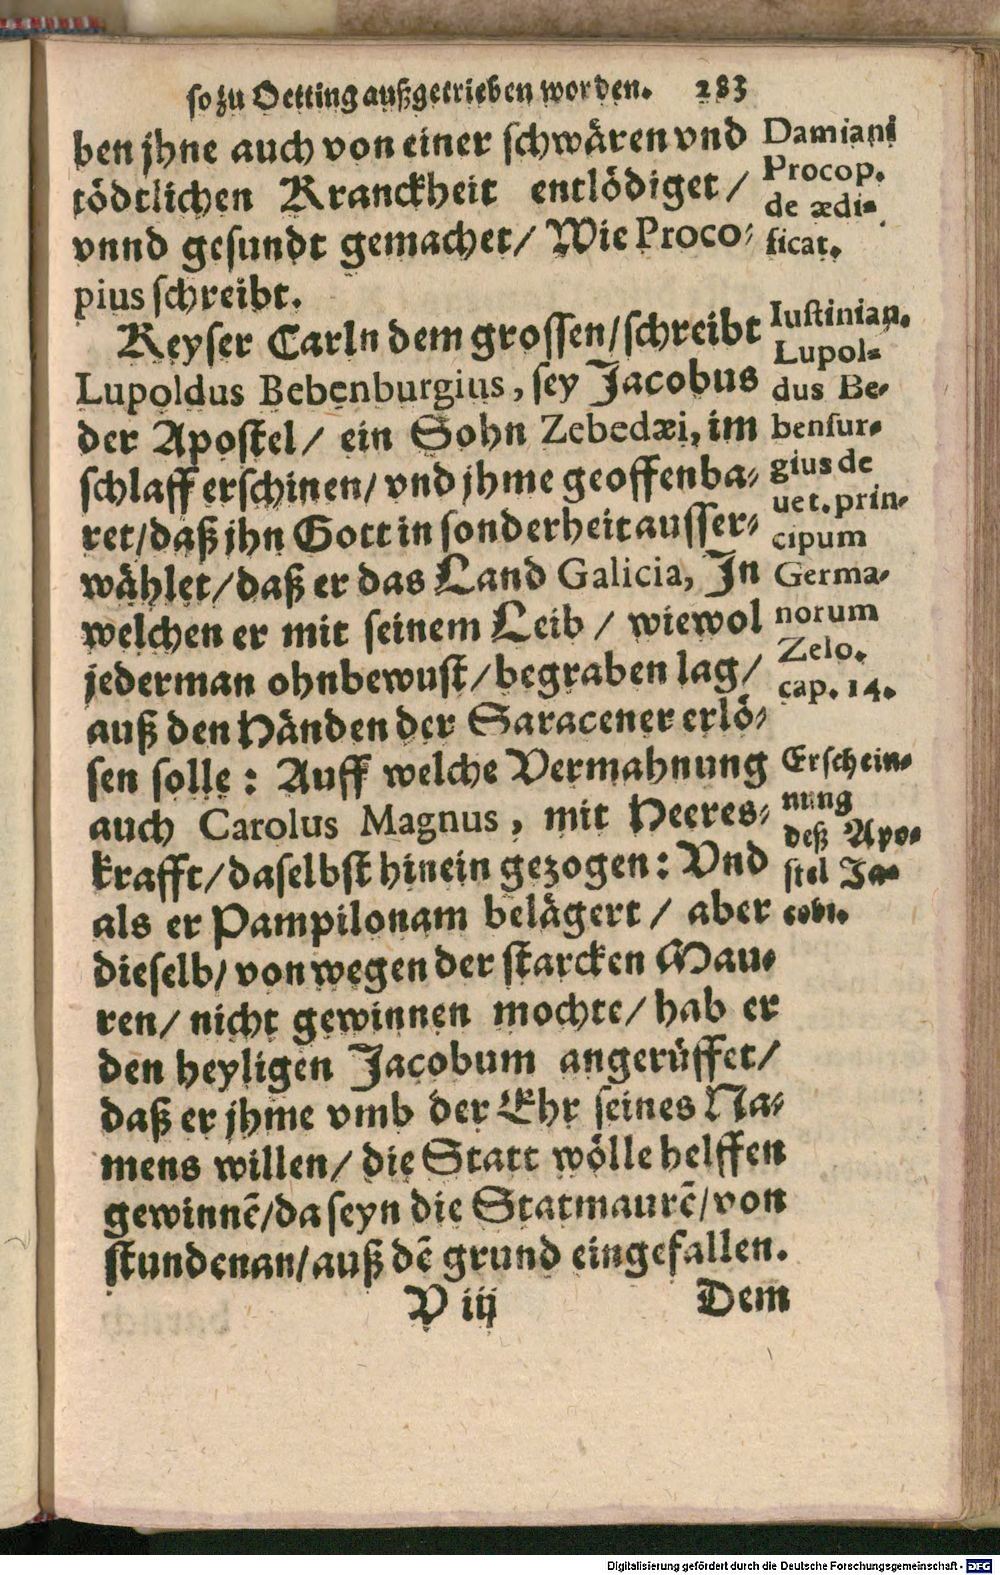 so zu Oetting außgetrieben worden. 283
ben jhne auch von einer schwären vnd
tödtlichen Kranckheit entlödiget /
vnnd gesundt gemachet / Wie Proco-
pius schreibt.
Keyser Carln dem grossen / schreibt
Lupoldus Bebenburgius, sey Jacobus
der Apostel / ein Sohn Zebedæi, im
schlaff erschinen / vnd jhme geoffenba-
ret / daß jhn Gott in sonderheit ausser-
wählet / daß er das Land Galicia, In
welchen er mit seinem Leib / wiewol
jederman ohnbewust / begraben lag /
auß den Händen der Saracener erlö-
sen solle : Auff welche Vermahnung
auch Carolus Magnus, mit Heeres-
krafft / daselbst hinein gezogen : Vnd
als er Pampilonam belägert / aber
dieselb / von wegen der starcken Mau-
ren / nicht gewinnen mochte / hab er
den heyligen Jacobum angerüffet /
daß er jhme vmb der Ehr seines Na-
mens willen / die Statt wölle helffen
gewinnē / da seyn die Statmaurē / von
stunden an / auß dē grund eingefallen.
V iij Dem
Damiani
Procop.
de ædi-
ficat.
Iustinian.
Lupol-
dus Be-
bensur-
gius de
uet. prin-
cipum
Germa-
norum
Zelo.
cap. 14.
Erschein-
nung
deß Apo-
stel Ja-
cobi.
Digitalisierung gefördert durch die Deutsche Forschungsgemeinschaft - DFG